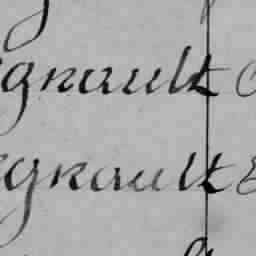 gnault
gnault